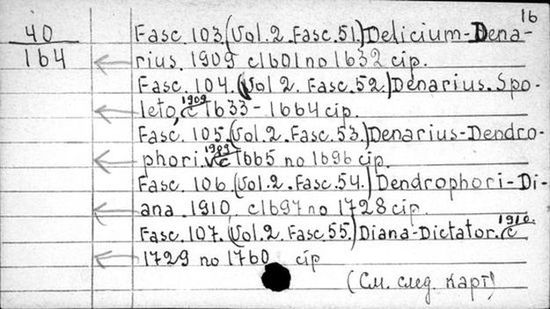 16
40
164
Fasc. 103. (Vol. 2. Fasc. 51.) Delicium-Dena-
rius. 1909 с 1601 по 1632 стр.
Fasc. 104. (Vol. 2. Fasc. 52.) Denarius. Spo-
leto, 1909 с 1633 - 1664 стр.
Fasc. 105. (Vol. 2. Fasc. 53.) Denarius-Dendro-
phori. 1909 с 1665 по 1696 стр.
Fasc. 106. (Vol. 2. Fasc. 54.) Dendrophori-Di-
ana. 1910. с 1697 по 1728 стр.
Fasc. 107. (Vol. 2. Fasc. 55.) Diana-Dictator. 1910 с
1729 по 1760 стр
(См. след. карт)